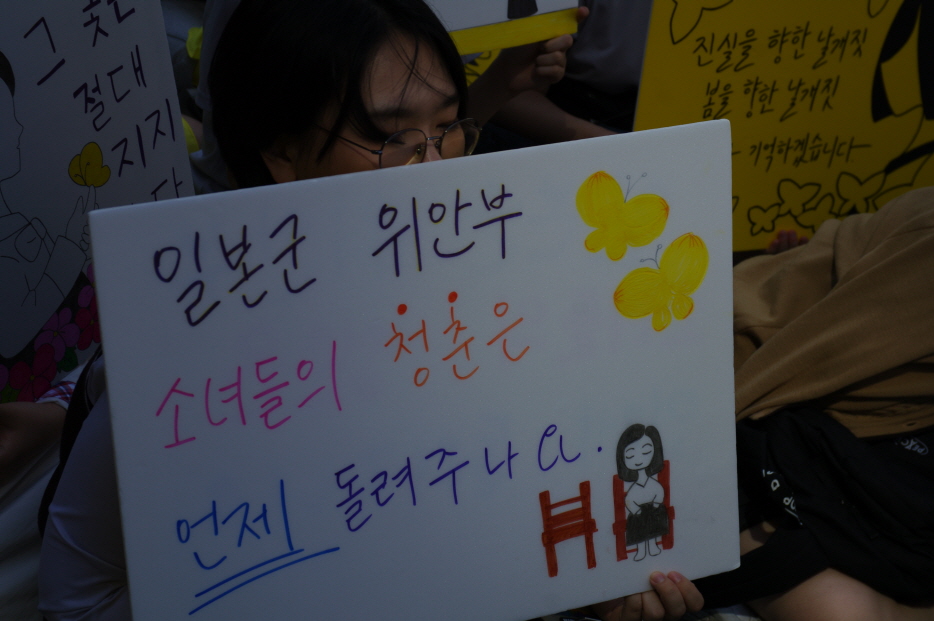 그 꽃은
절대
지지
진실을 향한 날개짓
봄을 향한 날개짓
- 기억하겠습니다 -
일본군 위안부
소녀들의 청춘은
언제 돌려주나요.